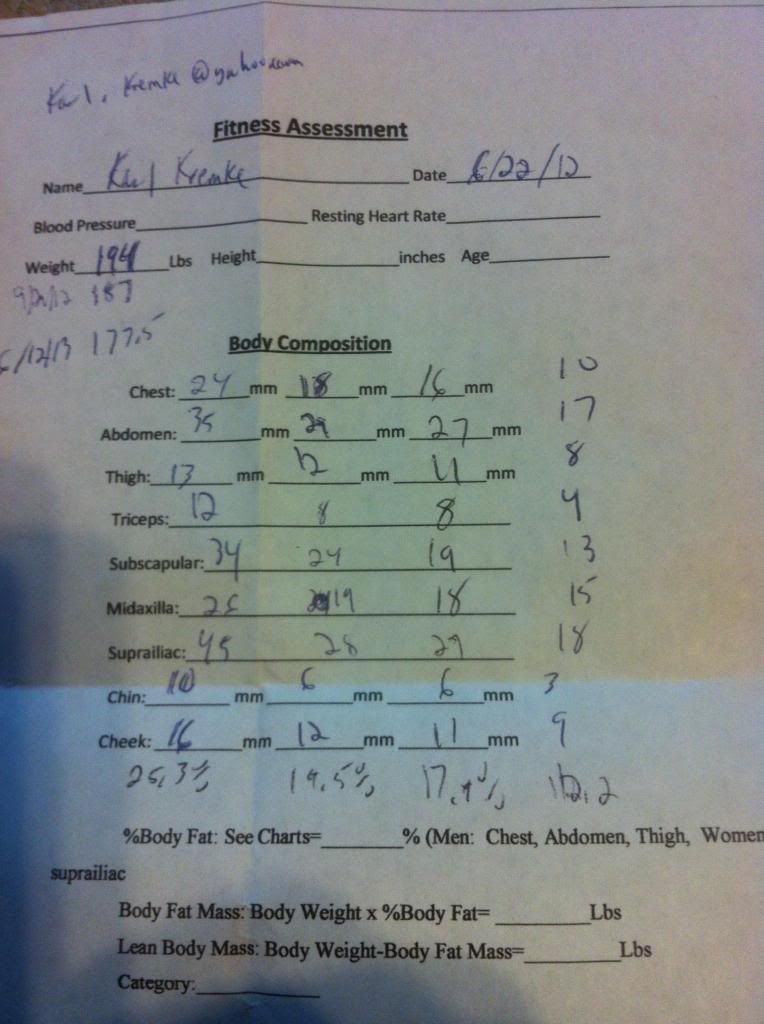 Karl.Kremke@yahoo.com
Fitness Assessment
Name Karl Kremke Date 6/22/12
Blood Pressure Resting Heart Rate
Weight 194 Lbs Height inches Age
187
6/12/13 177.5
Body Composition
Chest: 24 mm 18 mm 16 mm 10
Abdomen: 35 mm 29 mm 27 mm 17
Thigh: 13 mm 12 mm 11 mm 8
Triceps: 12 8 8 4
Subscapular: 34 24 19 13
Midaxilla: 25 19 18 15
Suprailiac: 45 28 29 18
Chin: 10 mm 6 mm 6 mm 3
Cheek: 16 mm 12 mm 11 mm 9
25.3% 19.5% 17.9% 12.2
%Body Fat: See Charts= % (Men: Chest, Abdomen, Thigh, Women
suprailiac
Body Fat Mass: Body Weight x %Body Fat= Lbs
Lean Body Mass: Body Weight-Body Fat Mass= Lbs
Category: